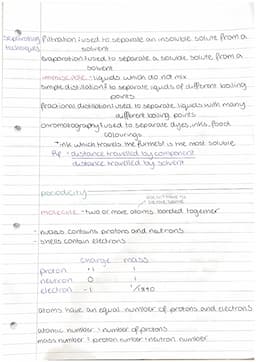 separating techniques
filtration: used to separate an insoluble solute from a
solvent
evaporation: used to separate a soluble solute from a
solvent
immiscible: liquids which do not mix
simple distillation: to separate liquids of different boiling
points
fractional distillation: used to separate liquids with many
different boiling points
chromatography: used to separate dyes, inks, food
colourings
*ink which travels the furthest is the most soluble
Rf = distance travelled by component
distance travelled by solvent
periodicity
molecule - two or more atoms bonded together
- nucleus contains protons and neutrons
- shells contain electrons
charge mass
proton +1 1
neutron 0 1
electron -1 1/1840
atoms have an equal number of protons and electrons
atomic number: number of protons
mass number: proton number + neutron number